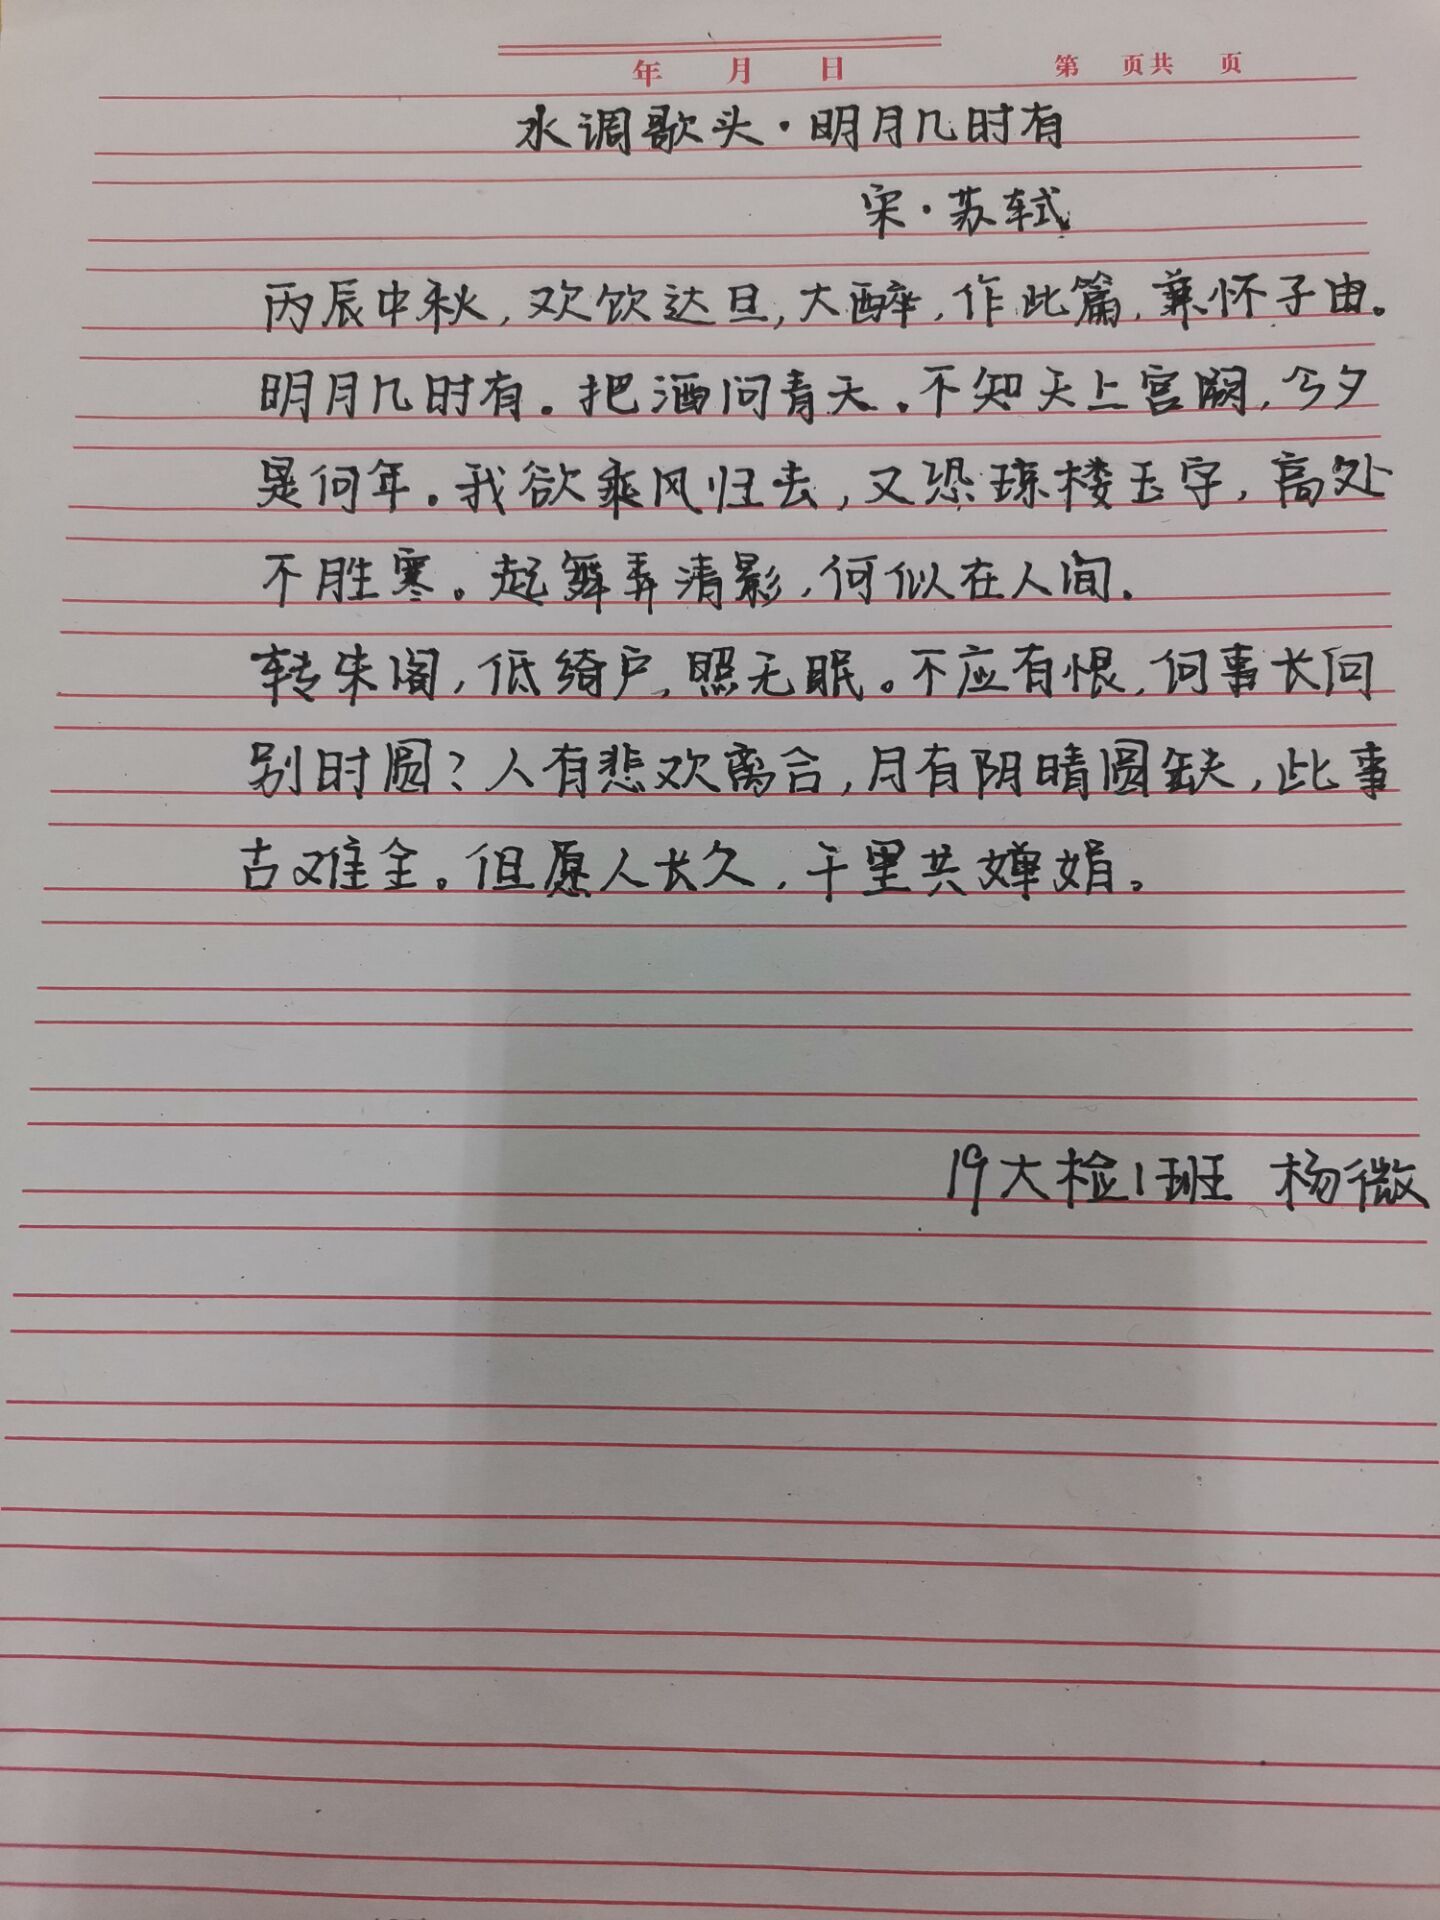 年 月 日 第 页共 页
水调歌头·明月几时有
宋·苏轼
丙辰中秋,欢饮达旦,大醉,作此篇,兼怀子由。
明月几时有。把酒问青天。不知天上宫阙,今夕
是何年。我欲乘风归去,又恐琼楼玉宇,高处
不胜寒。起舞弄清影,何似在人间.
转朱阁,低绮户,照无眠。不应有恨,何事长向
别时圆?人有悲欢离合,月有阴晴圆缺,此事
古难全。但愿人长久,千里共婵娟。
19大检1班 杨微